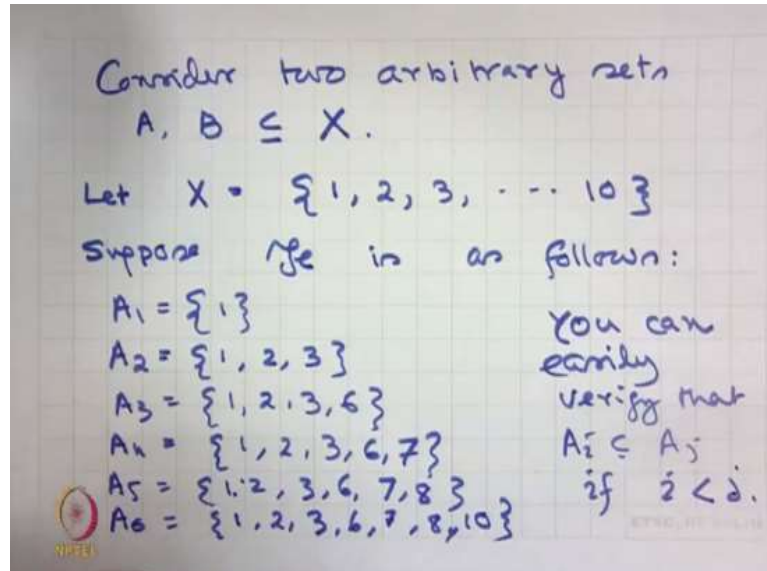 Consider two arbitrary sets
A, B ⊆ X.
Let X = {1, 2, 3, ... 10}
Suppose is as follows:
A1 = {1}
A2 = {1, 2, 3}
A3 = {1, 2, 3, 6}
A4 = {1, 2, 3, 6, 7}
A5 = {1, 2, 3, 6, 7, 8}
A6 = {1, 2, 3, 6, 7, 8, 10}
You can
easily
verify that
Ai ⊆ Aj
if i < j.
NPTEL